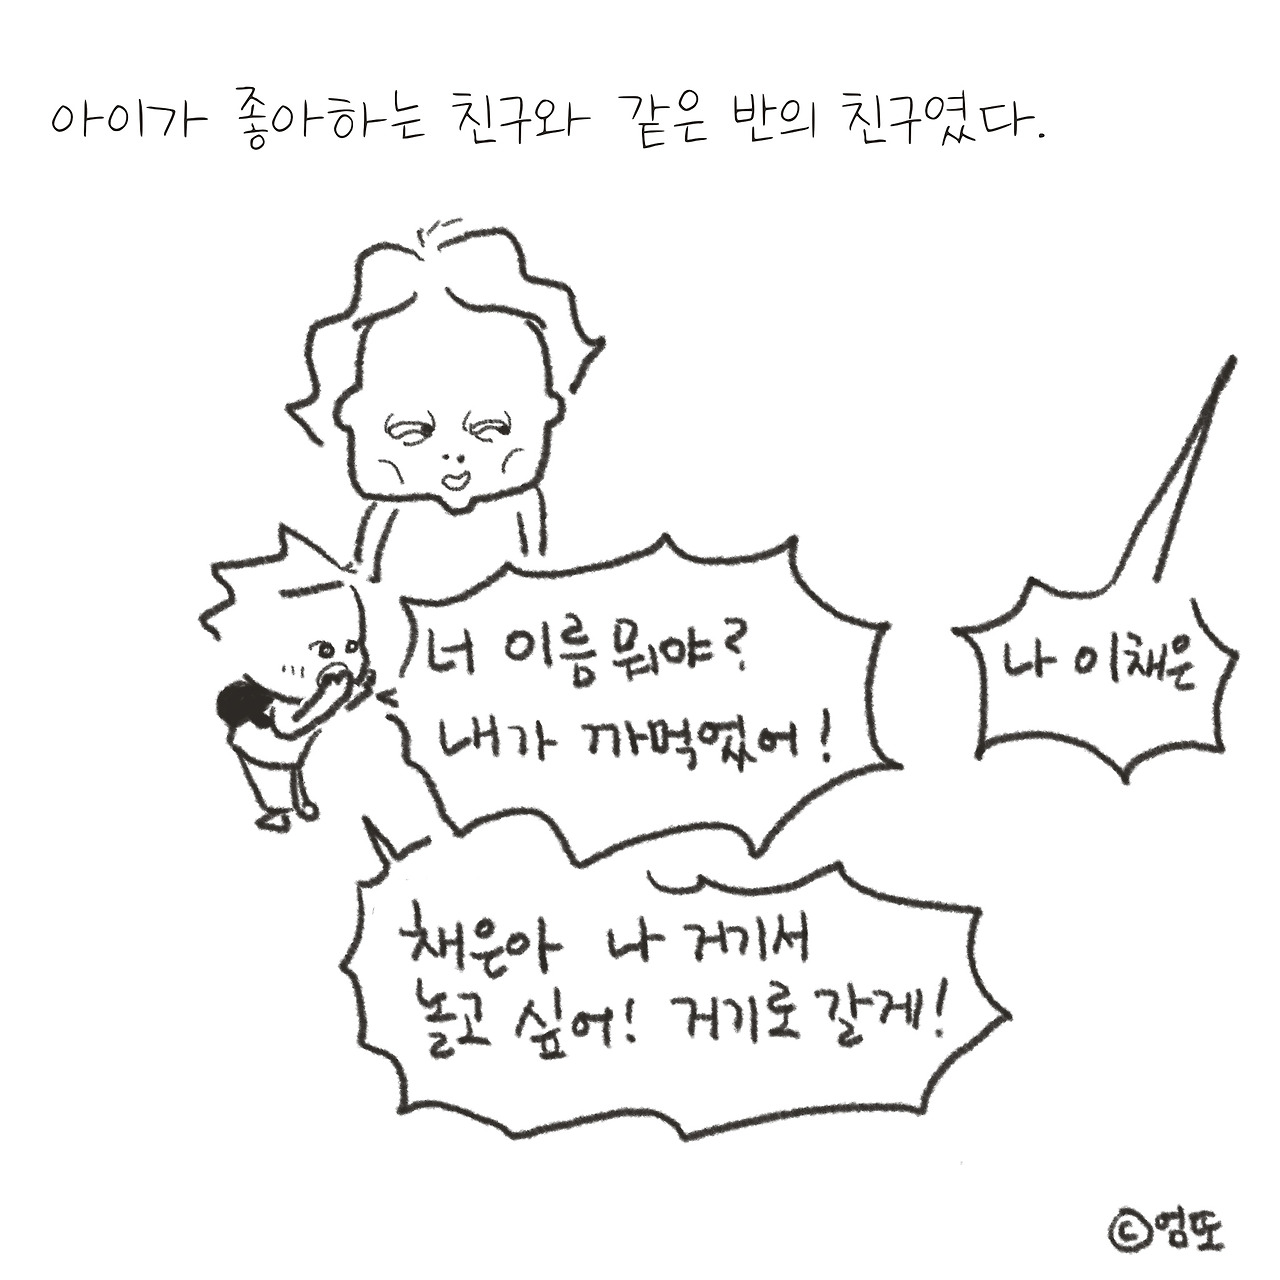 아이가 좋아하는 친구와 같은 반의 친구였다.
너 이름 뭐야?
내가 까먹었어!
나 이채은
채은아 나 거기서
놀고 싶어! 거기로 갈게!
©염또